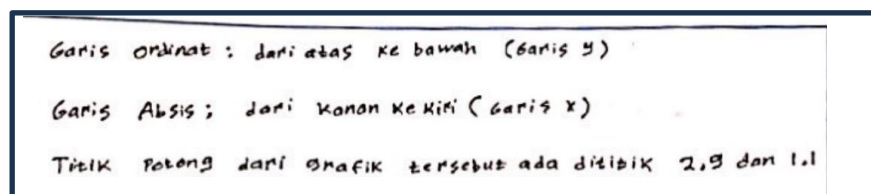 Garis ordinat : dari atas ke bawah (Garis y)
Garis Absis ; dari kanan ke kiri (Garis x)
Titik Potong dari grafik tersebut ada dititik 2,9 dan 1.1